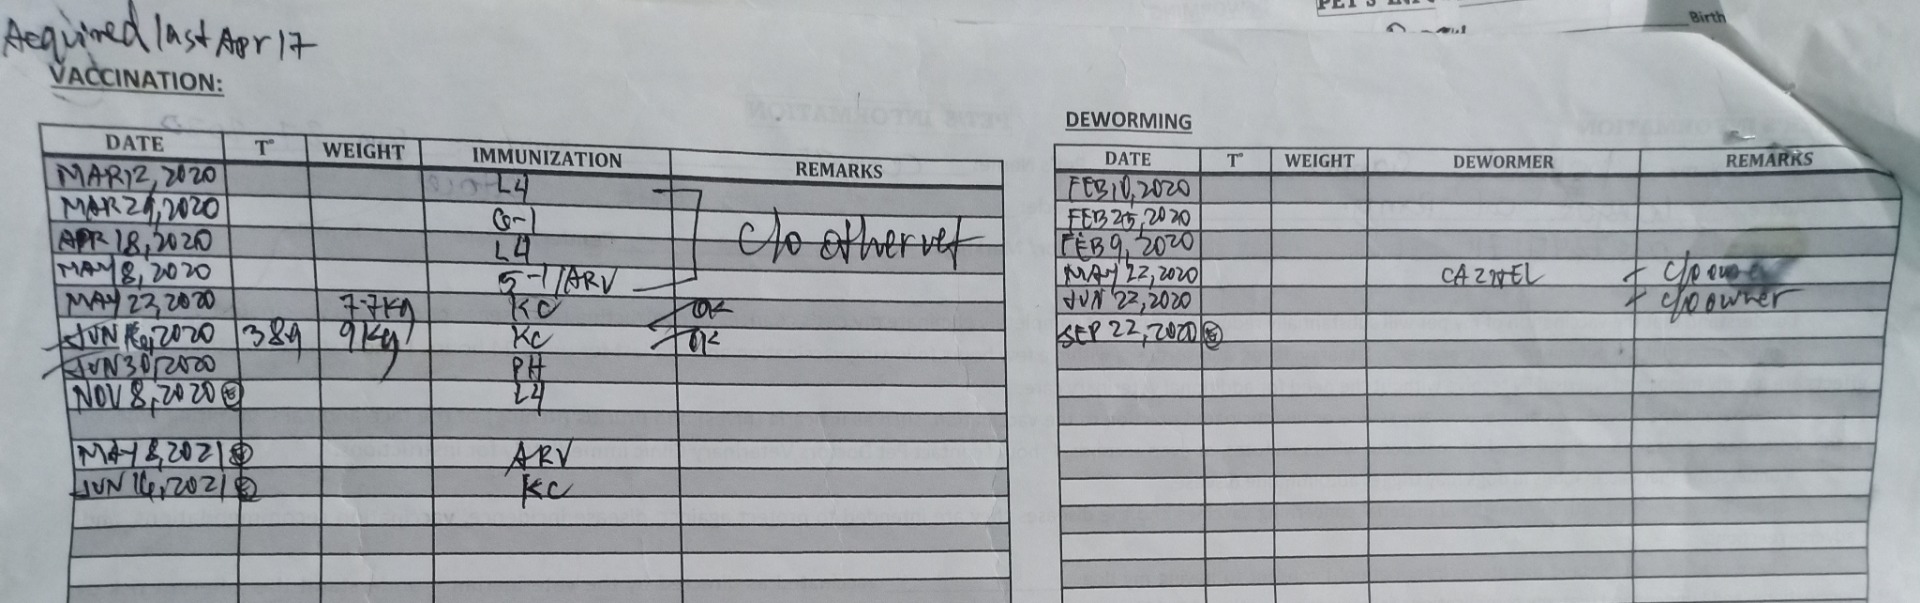 Acquired last Apr 17
PET'S
Birth
VACCINATION:
DATE T° WEIGHT IMMUNIZATION REMARKS
MAR 12, 2020 L4
MAR 29, 2020 6-1
APR 18, 2020 L4 c/o other vet
MAY 8, 2020 5-1/ARV
MAY 23, 2020 7.7kg KC OK
JUN 16, 2020 389 9kg KC OK
JUN 30, 2020 PH
NOV 8, 2020 L4
MAY 8, 2021 ARV
JUN 16, 2021 KC
DEWORMING
DATE T° WEIGHT DEWORMER REMARKS
FEB 10, 2020
FEB 25, 2020
FEB 9, 2020
MAY 22, 2020 CAZNEL c/o
JUN 22, 2020 c/o owner
SEP 22, 2020